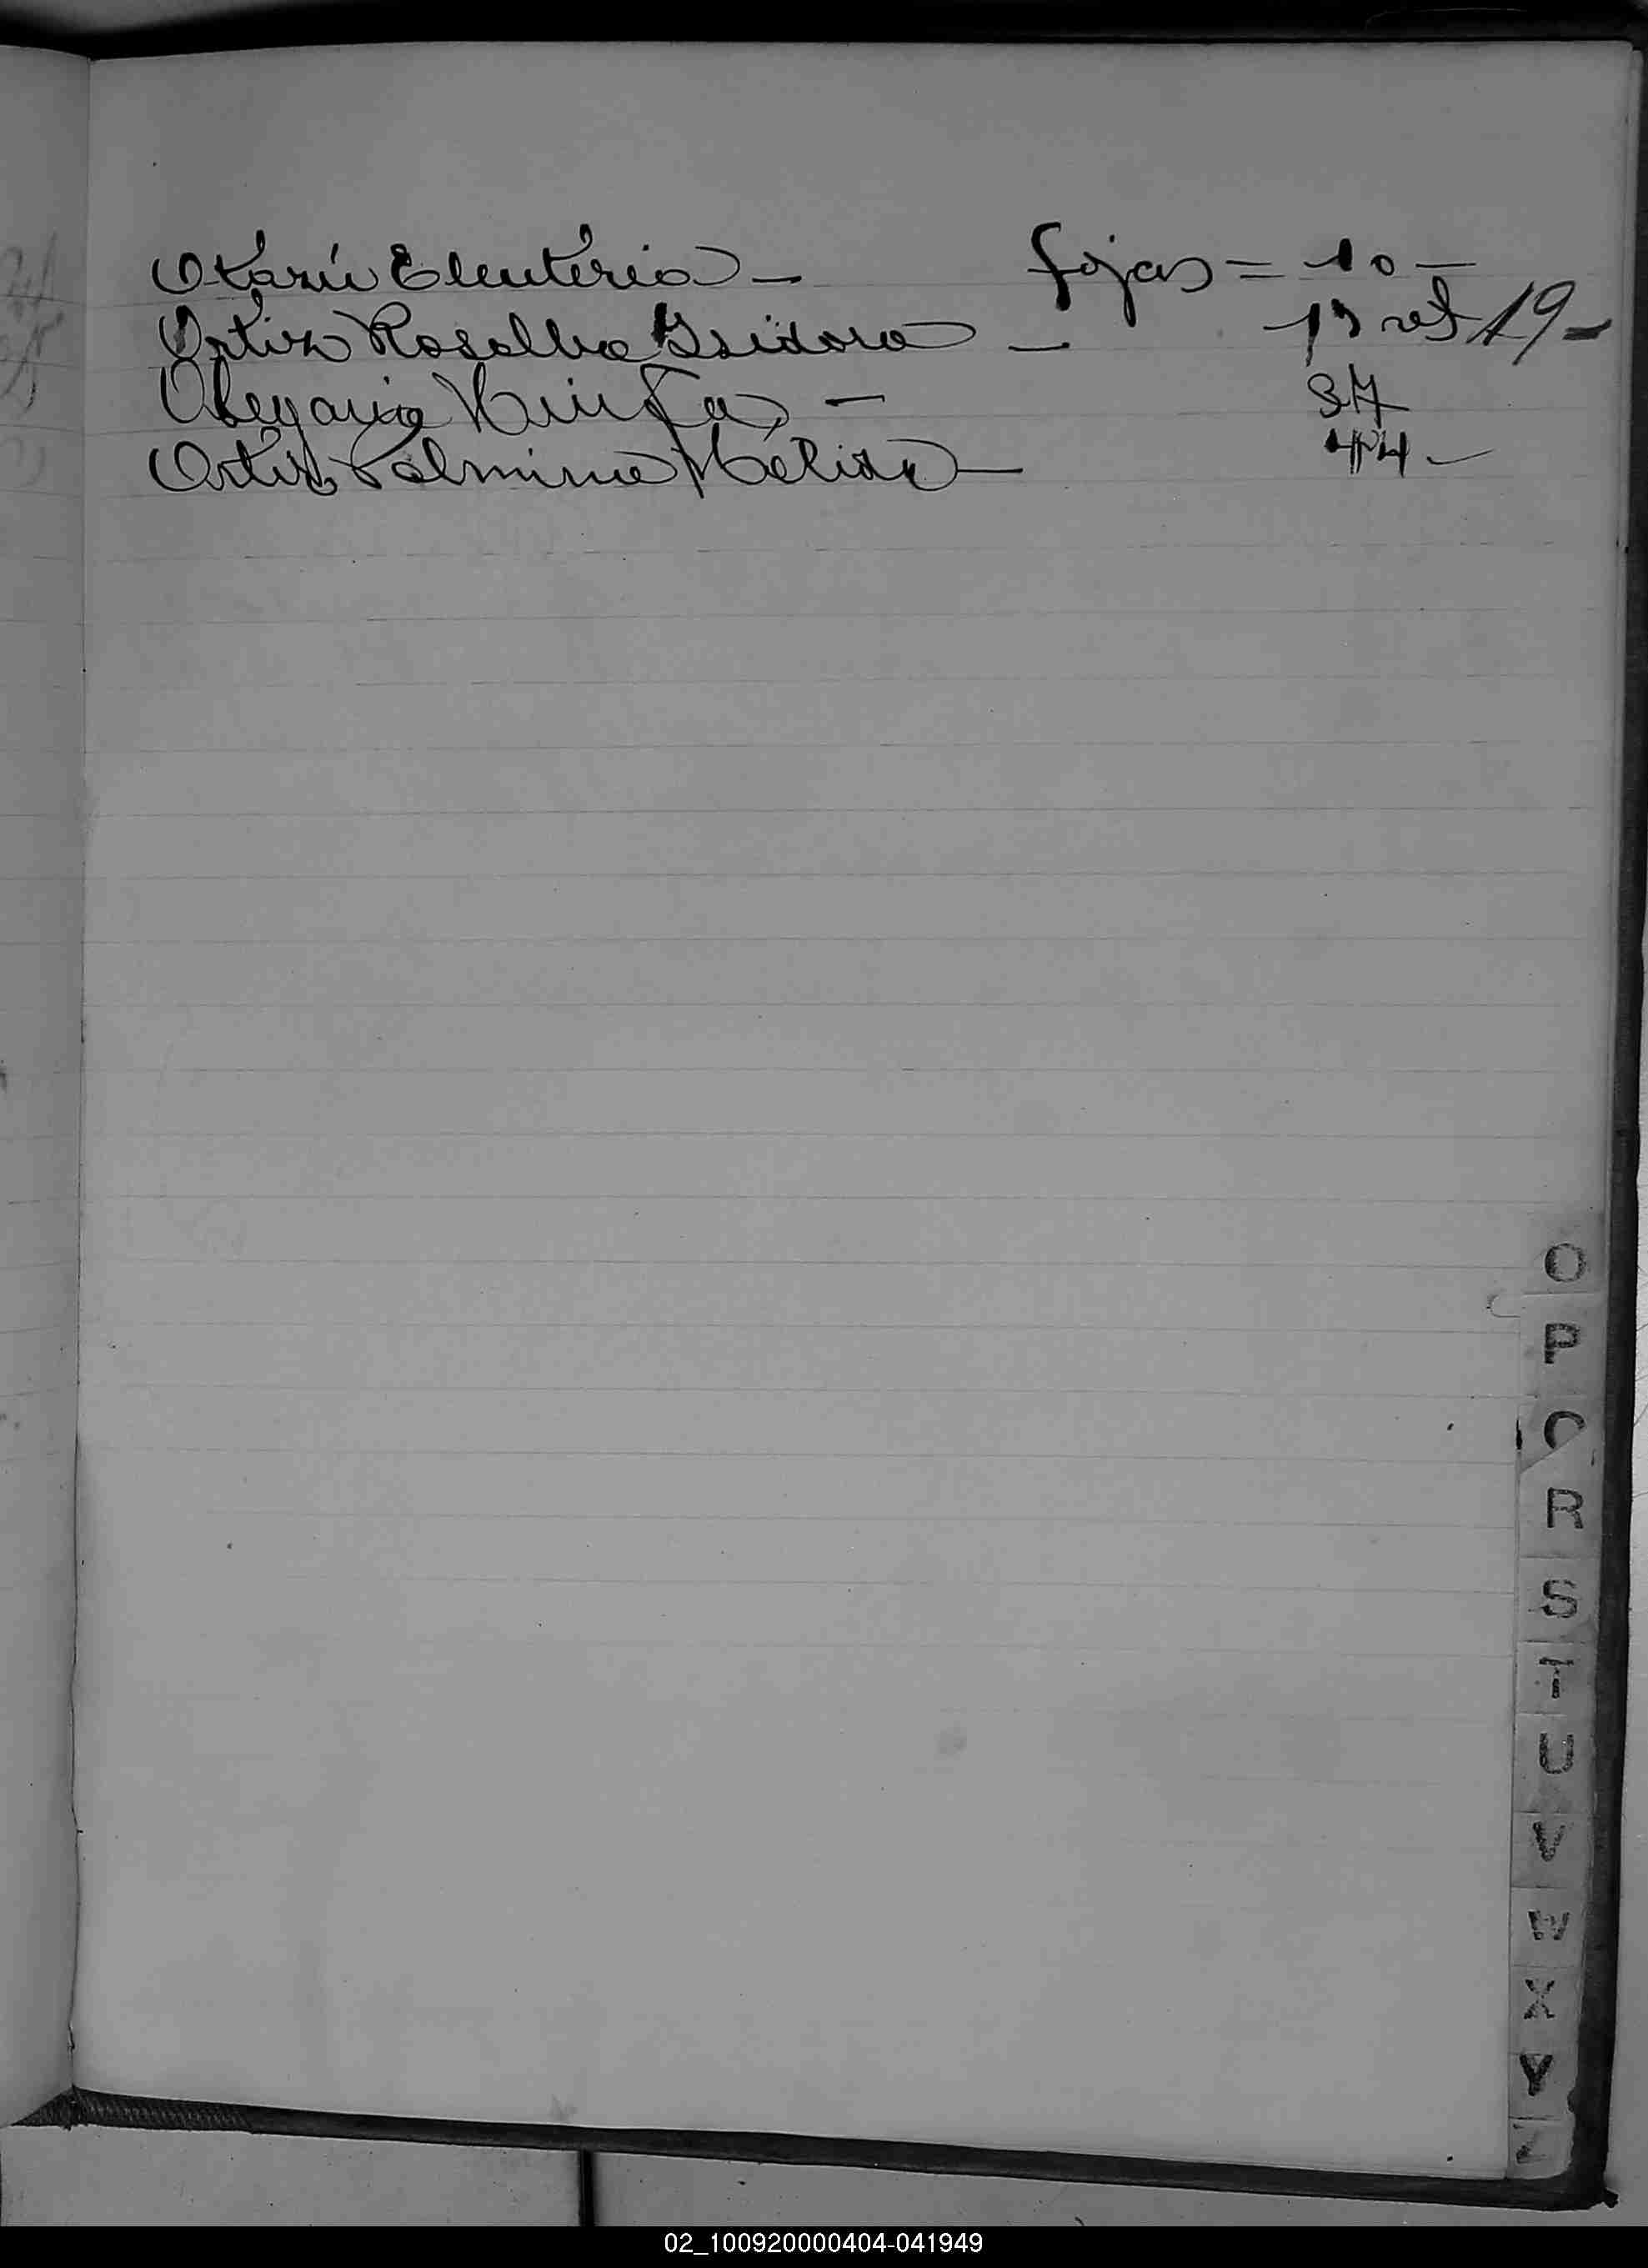 Otazú Eleuteria — fojas = 10 —
Ortiz Rosalba Isidora — 19 —
Olegaria Ninfa — 37
Ortiz Palmina Mélida — 44 —
O
P
Q
R
S
T
U
V
W
X
Y
02_100920000404-041949